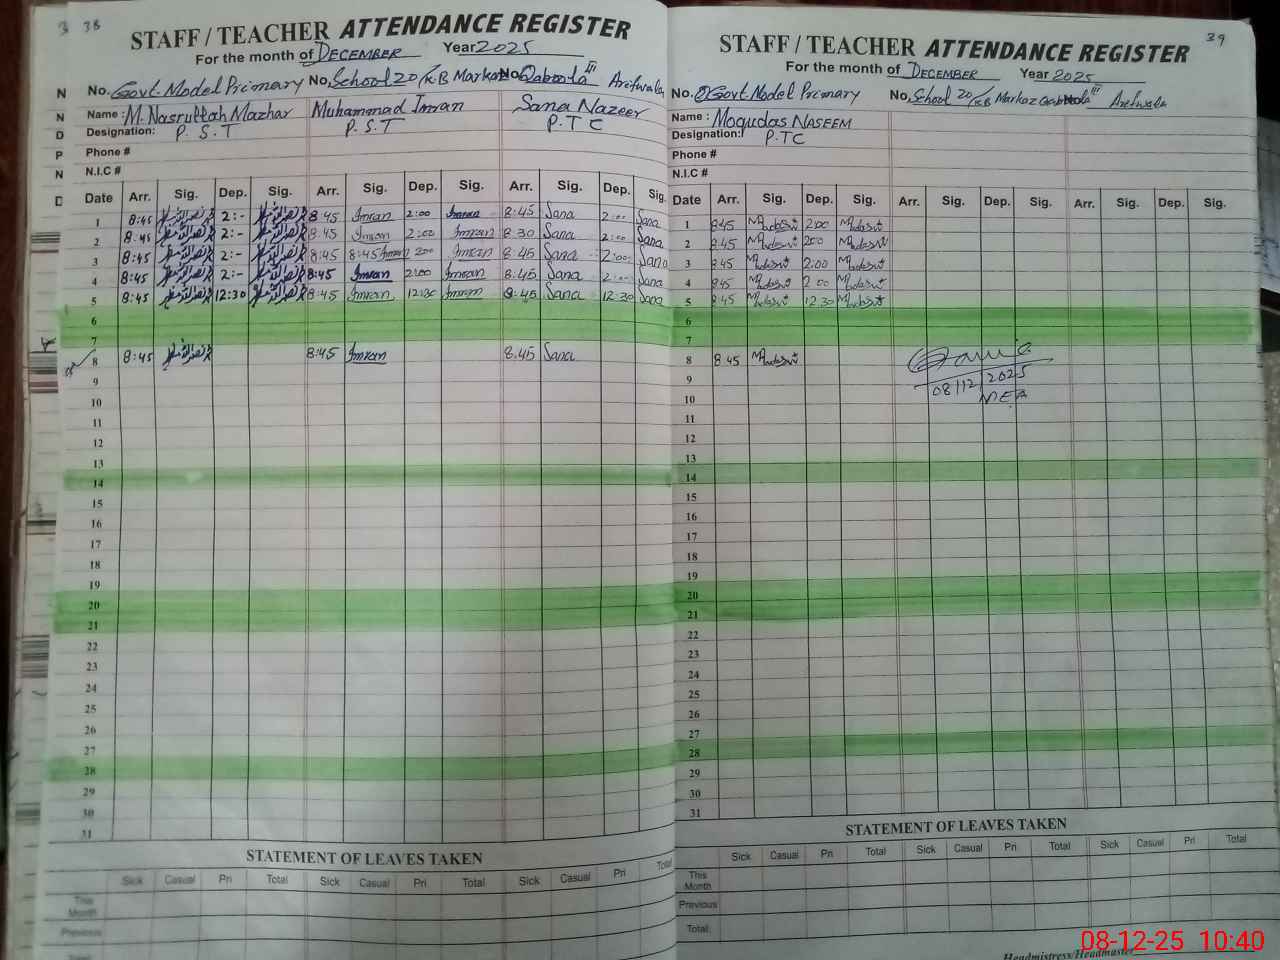 38
STAFF / TEACHER ATTENDANCE REGISTER
For the month of DECEMBER Year 2025
No. Govt. Model Primary No. School 20/KB Markaz No Qaboola III Arifwala
Name : M. Nasrullah Mazhar Muhammad Imran Sana Nazeer
Designation: P.S.T P.S.T P.T.C
Phone #
N.I.C #
Date Arr. Sig. Dep. Sig. Arr. Sig. Dep. Sig. Arr. Sig. Dep. Sig.
1 8:45 2:- 8:45 Imran 2:00 Imran 8:45 Sana 2:00 Sana
2 8:45 2:- 8:45 Imran 2:00 Imran 8:30 Sana 2:00 Sana
3 8:45 2:- 8:45 8:45 Imran 2:00 Imran 8:45 Sana 2:00 Sana
4 8:45 2:- 8:45 Imran 2:00 Imran 8:45 Sana 2:00 Sana
5 8:45 12:30 8:45 Imran 12:30 Imran 8:45 Sana 12:30 Sana
6
7
8 8:45 8:45 Imran 8:45 Sana
9
10
11
12
13
14
15
16
17
18
19
20
21
22
23
24
25
26
27
28
29
30
31
STATEMENT OF LEAVES TAKEN
Sick Casual Pri Total Sick Casual Pri Total Sick Casual Pri Total
This Month
Previous
Total
39
STAFF / TEACHER ATTENDANCE REGISTER
For the month of DECEMBER Year 2025
No. Govt. Model Primary No. School 20/KB Markaz Qaboola III Arifwala
Name : Moqudas NASEEM
Designation: P.T.C
Phone #
N.I.C #
Date Arr. Sig. Dep. Sig. Arr. Sig. Dep. Sig. Arr. Sig. Dep. Sig.
1 8:45 2:00
2 8:45 2:00
3 8:45 2:00
4 8:45 2:00
5 8:45 12:30
6
7
8 8:45
9 08/12/2025
10 MEA
11
12
13
14
15
16
17
18
19
20
21
22
23
24
25
26
27
28
29
30
31
STATEMENT OF LEAVES TAKEN
Sick Casual Pri Total Sick Casual Pri Total Sick Casual Pri Total
This Month
Previous
Total:
Headmistress/Headmaster
08-12-25 10:40